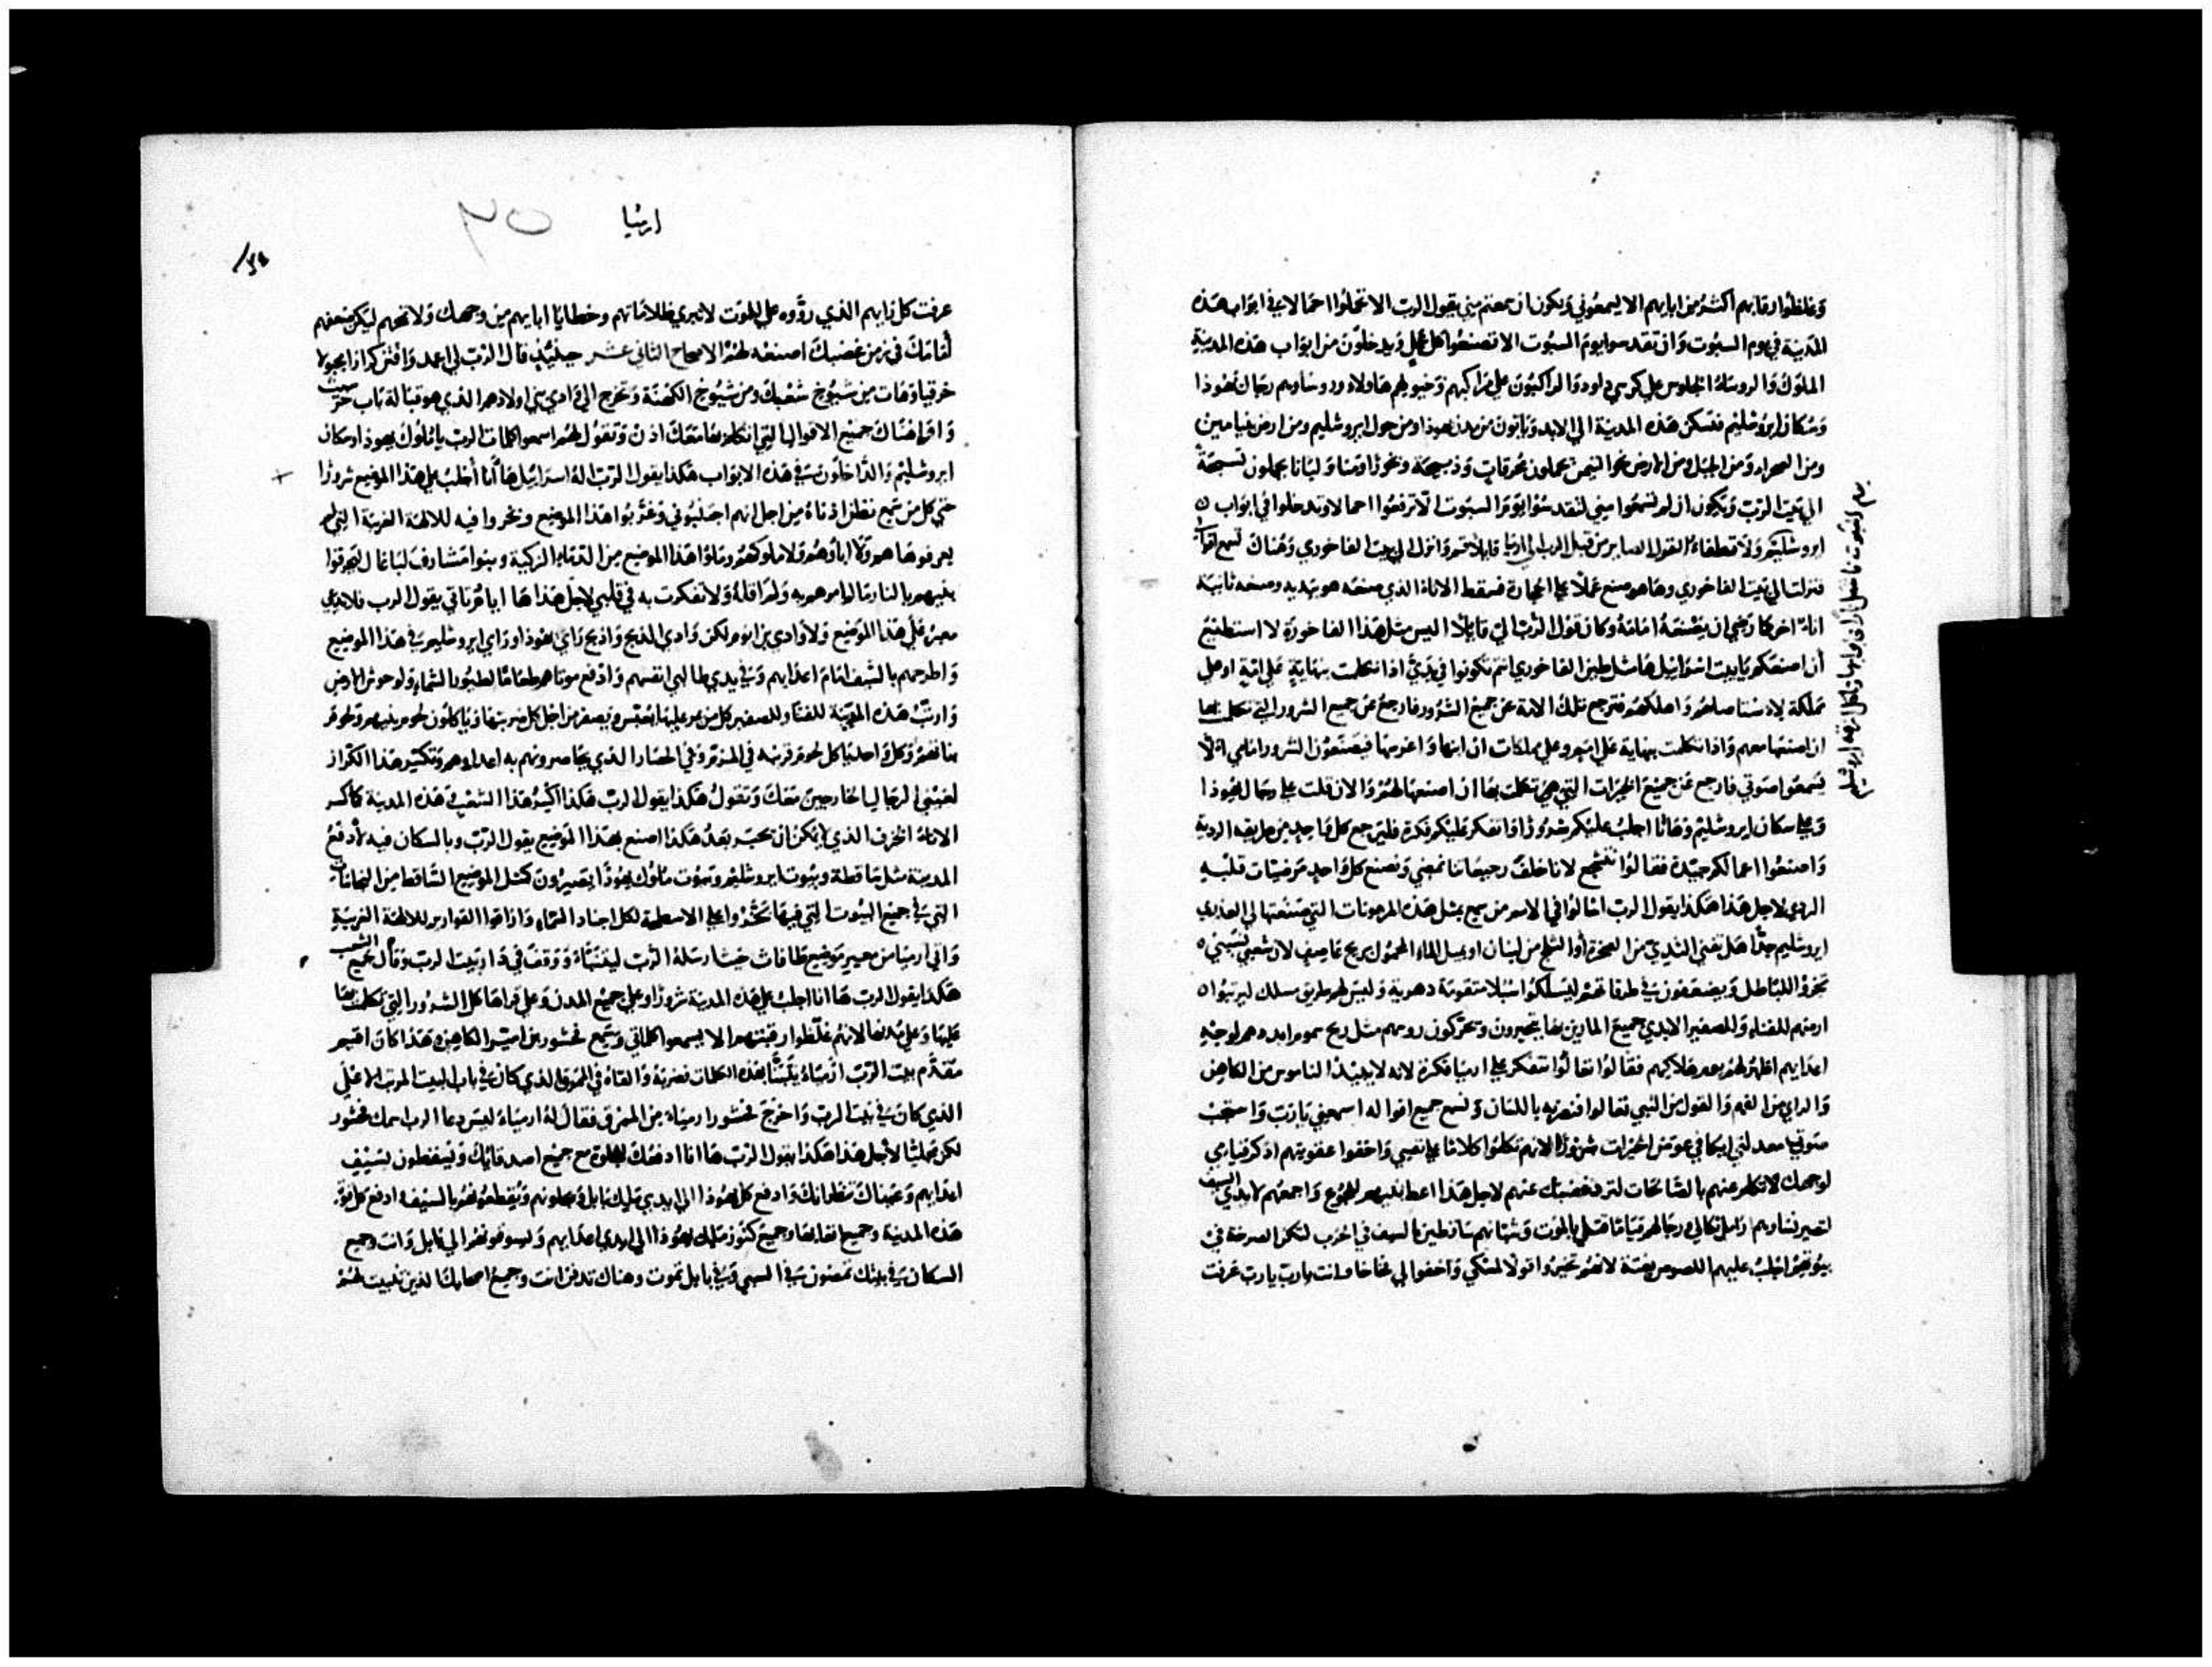 وغلظوا رقابهم اكثر من ابايهم الا يسمعوني ويكون ان سمعتم مني يقول الرب الا تدخلوا احمالا في ابواب هذه
المدينة في يوم السبوت وان تقدسوا يوم السبوت الا تصنعوا كل عمل ويدخلون من ابواب هذه المدينة
الملوك والروساء الجلوس علي كرسي داود والراكبون علي مراكبهم وخيولهم ها ولاه وروساوهم رجال يهوذا
وسكان ايروشليم فتسكن هذه المدينة الي الابد وياتون من مدن يهوذا ومن حول ايروشليم ومن ارض بنيامين
ومن الصحراء ومن الجبل ومن الارض نحو التيمن يحملون محرقات وذبيحة وبخورا ومنا ولبانا يحملون تسبحة
الي بيت الرب ويكون ان لم تسمعوا مني لتقدسوا يوم السبوت الا ترفعوا احمالا وتدخلوا في ابواب
ايروشليم ولا تطفاء القول الصاير من قبل الرب الي ارميا قايلا قم وانزل الي بيت الفاخوري وهناك تسمع اقوالي
فنزلت الي بيت الفاخوري وها هو صنع عملا علي الحجارة فسقط الاناء الذي صنعه هو بيديه وصنعه ثانية
اناء اخر كما رضي ان يصنعه امامه وكان قول الرب الي قايلا اليس مثل هذا الفاخوري لا استطيع
ان اصنعكم يا بيت اسراييل ها مثل طين الفاخوري انتم تكونوا في يدي اذا تكلمت بنهاية علي امة او علي
مملكة لاستاصلهم واهلكهم فترجع تلك الامة عن جميع الشرور فارجع عن جميع الشرور التي
ان اصنعها معهم واذا تكلمت بنهاية علي امة وعلي مملكات ان ابنيها واغرسها فيصنعون الشرور امامي الا
يسمعوا صوتي فارجع عن جميع الخيرات التي تكلمت بها ان اصنعها لهم والان قلت علي رجال يهوذا
وعلي سكان ايروشليم وها انا اجلب عليكم شرورا وافتكر عليكم فكرة فليرجع كل واحد من طريقه الردية
واصنعوا اعمالكم جيدة فقالوا نتشجع لاننا خلف رجيعاتنا نمضي ونصنع كل واحد مرضيات قلبه
الردي لاجل هذا هكذا يقول الرب اسالوا في الامم من سمع مثل هذه المرهوبات التي صنعتها العذري
ايروشليم جدا هل تفني الثدي من الصخرة او الثلج من لبنان او يميل الماء المحمول بريح عاصف لان شعبي نسيني
بخروا للباطل ويضعفون في طرقاتهم ليسلكوا سبلا متقومة دهرية وليس لهم طريق مسلك ليرتبوا
ارضهم للفناء وللصفير الابدي جميع المارين بها يتحيرون ويحركون روسهم مثل ريح سموم ابددهم لوجه
اعدايهم اظهر لهم يوم هلاكهم فقالوا تعالوا نتفكر علي ارميا فكرة لانه لا يبيد الناموس من الكاهن
والراي من الفهم والقول من النبي تعالوا فنضربه باللسان ونسمع جميع اقواله اسمعني يارب واستجب
صوتي عدلي ايكافي عوض الخيرات شرورا لانهم تكلموا كلاما علي نفسي واخفوا عقوبتهم اذكر قيامي
لوجهك لاتكلم عنهم بالصالحات لترد غضبك عنهم لاجل هذا اعط بنيهم للجوع واجمعهم لايدي السيف
لتصير نساوهم ارامل ثكالي ورجالهم قتلي بالموت وشبانهم ساقطين بالسيف في الحرب لتكن الصرخة في
بيوتهم اجلب عليهم اللصوص بغتة لانهم واقولا لمسكي واخفوا لي فخاخا وانت يارب يارب عرفت
ارميا
عرفت كل رايهم الذي رووه علي للموت لا تبري ظلاماتهم وخطايا ابايهم من وجهك ولا تمحهم ليكن ضعفهم
امامك في زمن غضبك اصنعه لهم الاصحاح الثاني عشر حينيذ قال الرب لي امض واقتن كرازا
خزفيا وهات من شيوخ شعبك ومن شيوخ الكهنة وتخرج الي وادي بني اولادهم الذي هو قبالة باب
واقرا هناك جميع الاقوال التي اتكلم بها معك اذن وتقول لهم اسمعوا كلمات الرب يا ملوك يهوذا وسكان
ايروشليم والداخلون في هذه الابواب هكذا يقول الرب اله اسراييل ها انا اجلب علي هذا الموضع شرورا
حتي كل من سمع تطن اذناه من اجل انهم اجتنبوني وغربوا هذا الموضع وبخروا فيه للالهة الغريبة التي لم
يعرفوها هم ولا اباوهم ولا ملوكهم وملوا هذا الموضع من الدماء الزكية وبنوا مشارف لباعال ليحرقوا
بنيهم بالنار ما لم امرهم به ولم اقله ولا تفكرت به في قلبي لاجل هذا ها ايام تاتي يقول الرب فلا يدعي
علي هذا الموضع ولا وادي بن انوم لكن وادي الذبح واذبح راي يهوذا وراي ايروشليم في هذا الموضع
واطرحهم بالسيف امام اعدايهم وفي يدي طالبي انفسهم وادفع موتاهم طعاما لطيور السماء ولوحوش الارض
وارتب هذه المدينة للفناء وللصفير كل من عبر عليها يعبس ويصفر من اجل كل ضربتها وياكلون لحوم بنيهم ولحوم
بناتهم وكل واحد ياكل لحوم قريبه في الحصار الذي يحاصرونهم به اعداوهم وتكسر هذا الكراز
لعيني الرجال الخارجين معك وتقول هكذا يقول الرب هكذا اكسر هذا الشعب في هذه المدينة كما كسر
الاناء الخزف الذي لا يمكن ان يجبر بعد هكذا اصنع بهذا الموضع يقول الرب وبالسكان فيه لادفع
المدينة مثل ساقطة وبيوت ايروشليم وبيوت ملوك يهوذا يصيرون كمثل الموضع الساقط من النجاسات
التي في جميع البيوت التي فيها بخروا علي الاسطحة لكل اجناد السماء واذاقوا القوارير للالهة الغريبة
واتي ارميا من موضع طافاث حيث ارسله الرب ليتنبا ووقف في دار بيت الرب وقال لجميع الشعب
هكذا يقول الرب ها انا اجلب علي هذه المدينة شرورا وعلي جميع المدن وعلي قراها كل الشرور التي تكلمت بها
عليها وعلي مدنها لانهم غلظوا رقبتهم الا يسمعوا كلماتي وسمع فشور بن امير الكاهن وهذا كان اقيم
مقدم بيت الرب ارمياء يتنبا بهذه الكلمات فضربه والقاه في الممرق الذي كان في باب البيت المرتب الاعلي
الذي كان في بيت الرب واخرج فشور ارمياء من الممرق فقال له ارمياء ليس دعا الرب اسمك فشور
لكن لاجل هذا هكذا يقول الرب ها انا ادفعك للجلوة مع جميع اصدقايك ويسقطون بسيف
اعدايهم وعيناك تنظرانك وادفع كل يهوذا الي ايدي ملك بابل ويجلونهم ويقطعونهم بالسيف وادفع كل قوة
هذه المدينة وجميع اتعابها وجميع كنوز ملك يهوذا الي ايدي اعدايهم ويسوقونهم الي بابل وانت وجميع
السكان في بيتك تمضون في السبي وفي بابل تموت وهناك تدفن انت وجميع اصحابك الذين تنبيت لهم